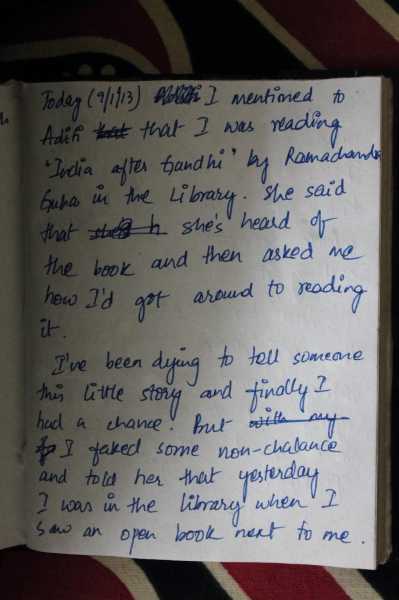 Today (9/1/13) I mentioned to
Aditi that I was reading
"India after Gandhi" by Ramachandra
Guha in the Library. She said
that she's heard of
the book and then asked me
how I'd got around to reading
it.
I've been dying to tell someone
this little story and finally I
had a chance. But with my
I faked some non-chalance
and told her that yesterday
I was in the library when I
saw an open book next to me.